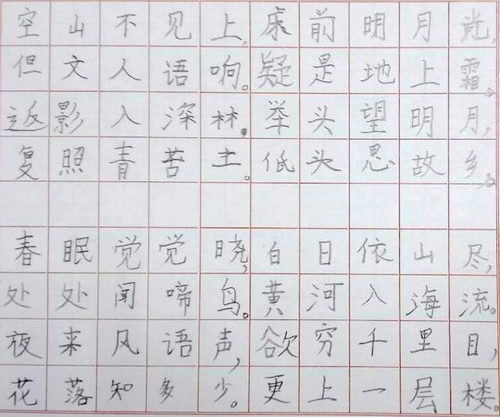 空山不见上,床前明月光,
但文人语响。疑是地上霜。
返影入深林。举头望明月,
复照青苔主。低头思故乡。
春眠觉觉晓,白日依山尽,
处处闻啼鸟。黄河入海流。
夜来风语声,欲穷千里目,
花落知多少。更上一层楼。